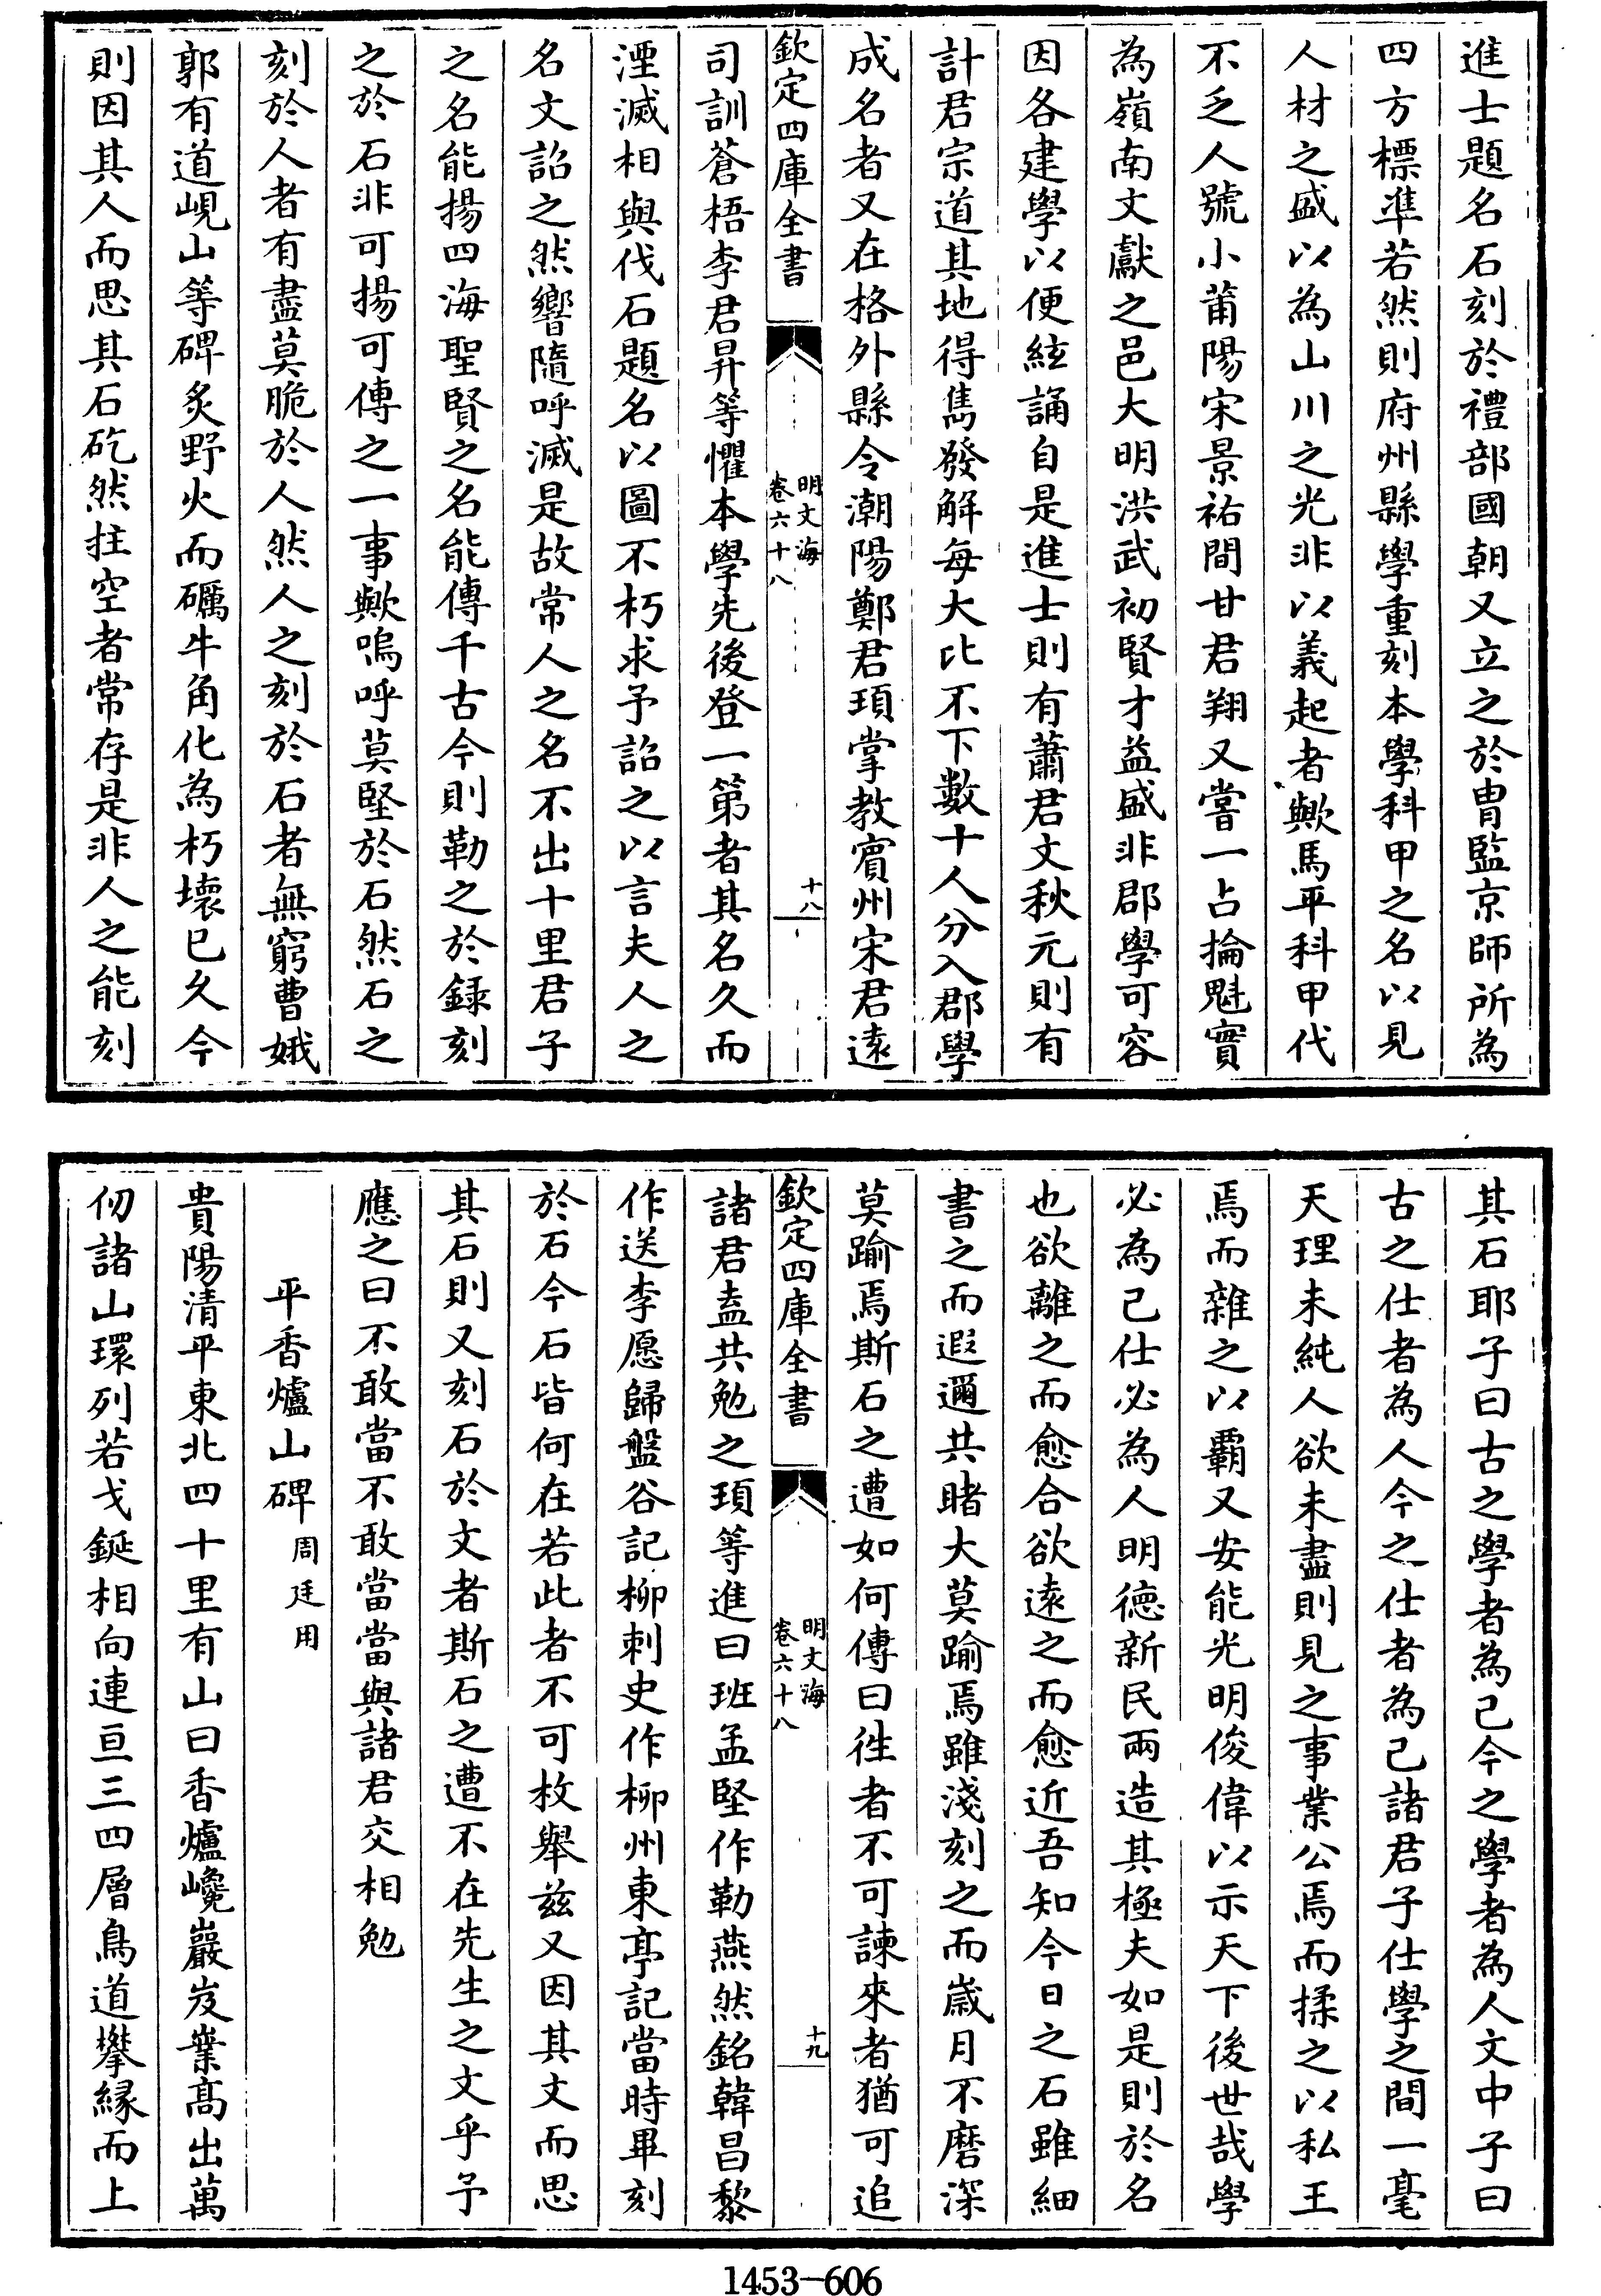 進士題名石刻於禮部國朝又立之於胄監京師所為
四方標準若然則府州縣學重刻本學科甲之名以見
人材之盛以為山川之光非以義起者歟馬平科甲代
不乏人號小莆陽宋景祐間甘君翔又嘗一占掄魁實
為嶺南文獻之邑大明洪武初賢才益盛非郡學可容
因各建學以便絃誦自是進士則有蕭君文秋元則有
計君宗道其地得雋發解每大比不下數十人分入郡學
成名者又在格外縣令潮陽鄭君頊掌教賓州宋君遠
欽定四庫全書
明文海
卷六十八
十八
司訓蒼梧李君昇等懼本學先後登一第者其名久而
湮滅相與伐石題名以圖不朽求予詔之以言夫人之
名文詔之然響隨呼滅是故常人之名不出十里君子
之名能揚四海聖賢之名能傳千古今則勒之於録刻
之於石非可揚可傳之一事歟嗚呼莫堅於石然石之
刻於人者有盡莫脆於人然人之刻於石者無窮曹娥
郭有道峴山等碑炙野火而礪牛角化為朽壞已久今
則因其人而思其石矻然拄空者常存是非人之能刻
其石耶子曰古之學者為己今之學者為人文中子曰
古之仕者為人今之仕者為己諸君子仕學之間一毫
天理未純人欲未盡則見之事業公焉而揉之以私王
焉而雜之以霸又安能光明俊偉以示天下後世哉學
必為己仕必為人明德新民兩造其極夫如是則於名
也欲離之而愈合欲遠之而愈近吾知今日之石雖細
書之而遐邇共睹大莫踰焉雖淺刻之而歳月不磨深
莫踰焉斯石之遭如何傳曰徃者不可諫來者猶可追
欽定四庫全書
明文海
卷六十八
十九
諸君盍共勉之頊等進曰班孟堅作勒燕然銘韓昌黎
作送李愿歸盤谷記柳刺史作柳州東亭記當時畢刻
於石今石皆何在若此者不可枚舉兹又因其文而思
其石則又刻石於文者斯石之遭不在先生之文乎予
應之曰不敢當不敢當當與諸君交相勉
平香爐山碑 周廷用
貴陽清平東北四十里有山曰香爐巉巖岌業髙出萬
仞諸山環列若戈鋋相向連亘三四層鳥道攀縁而上
1453-606